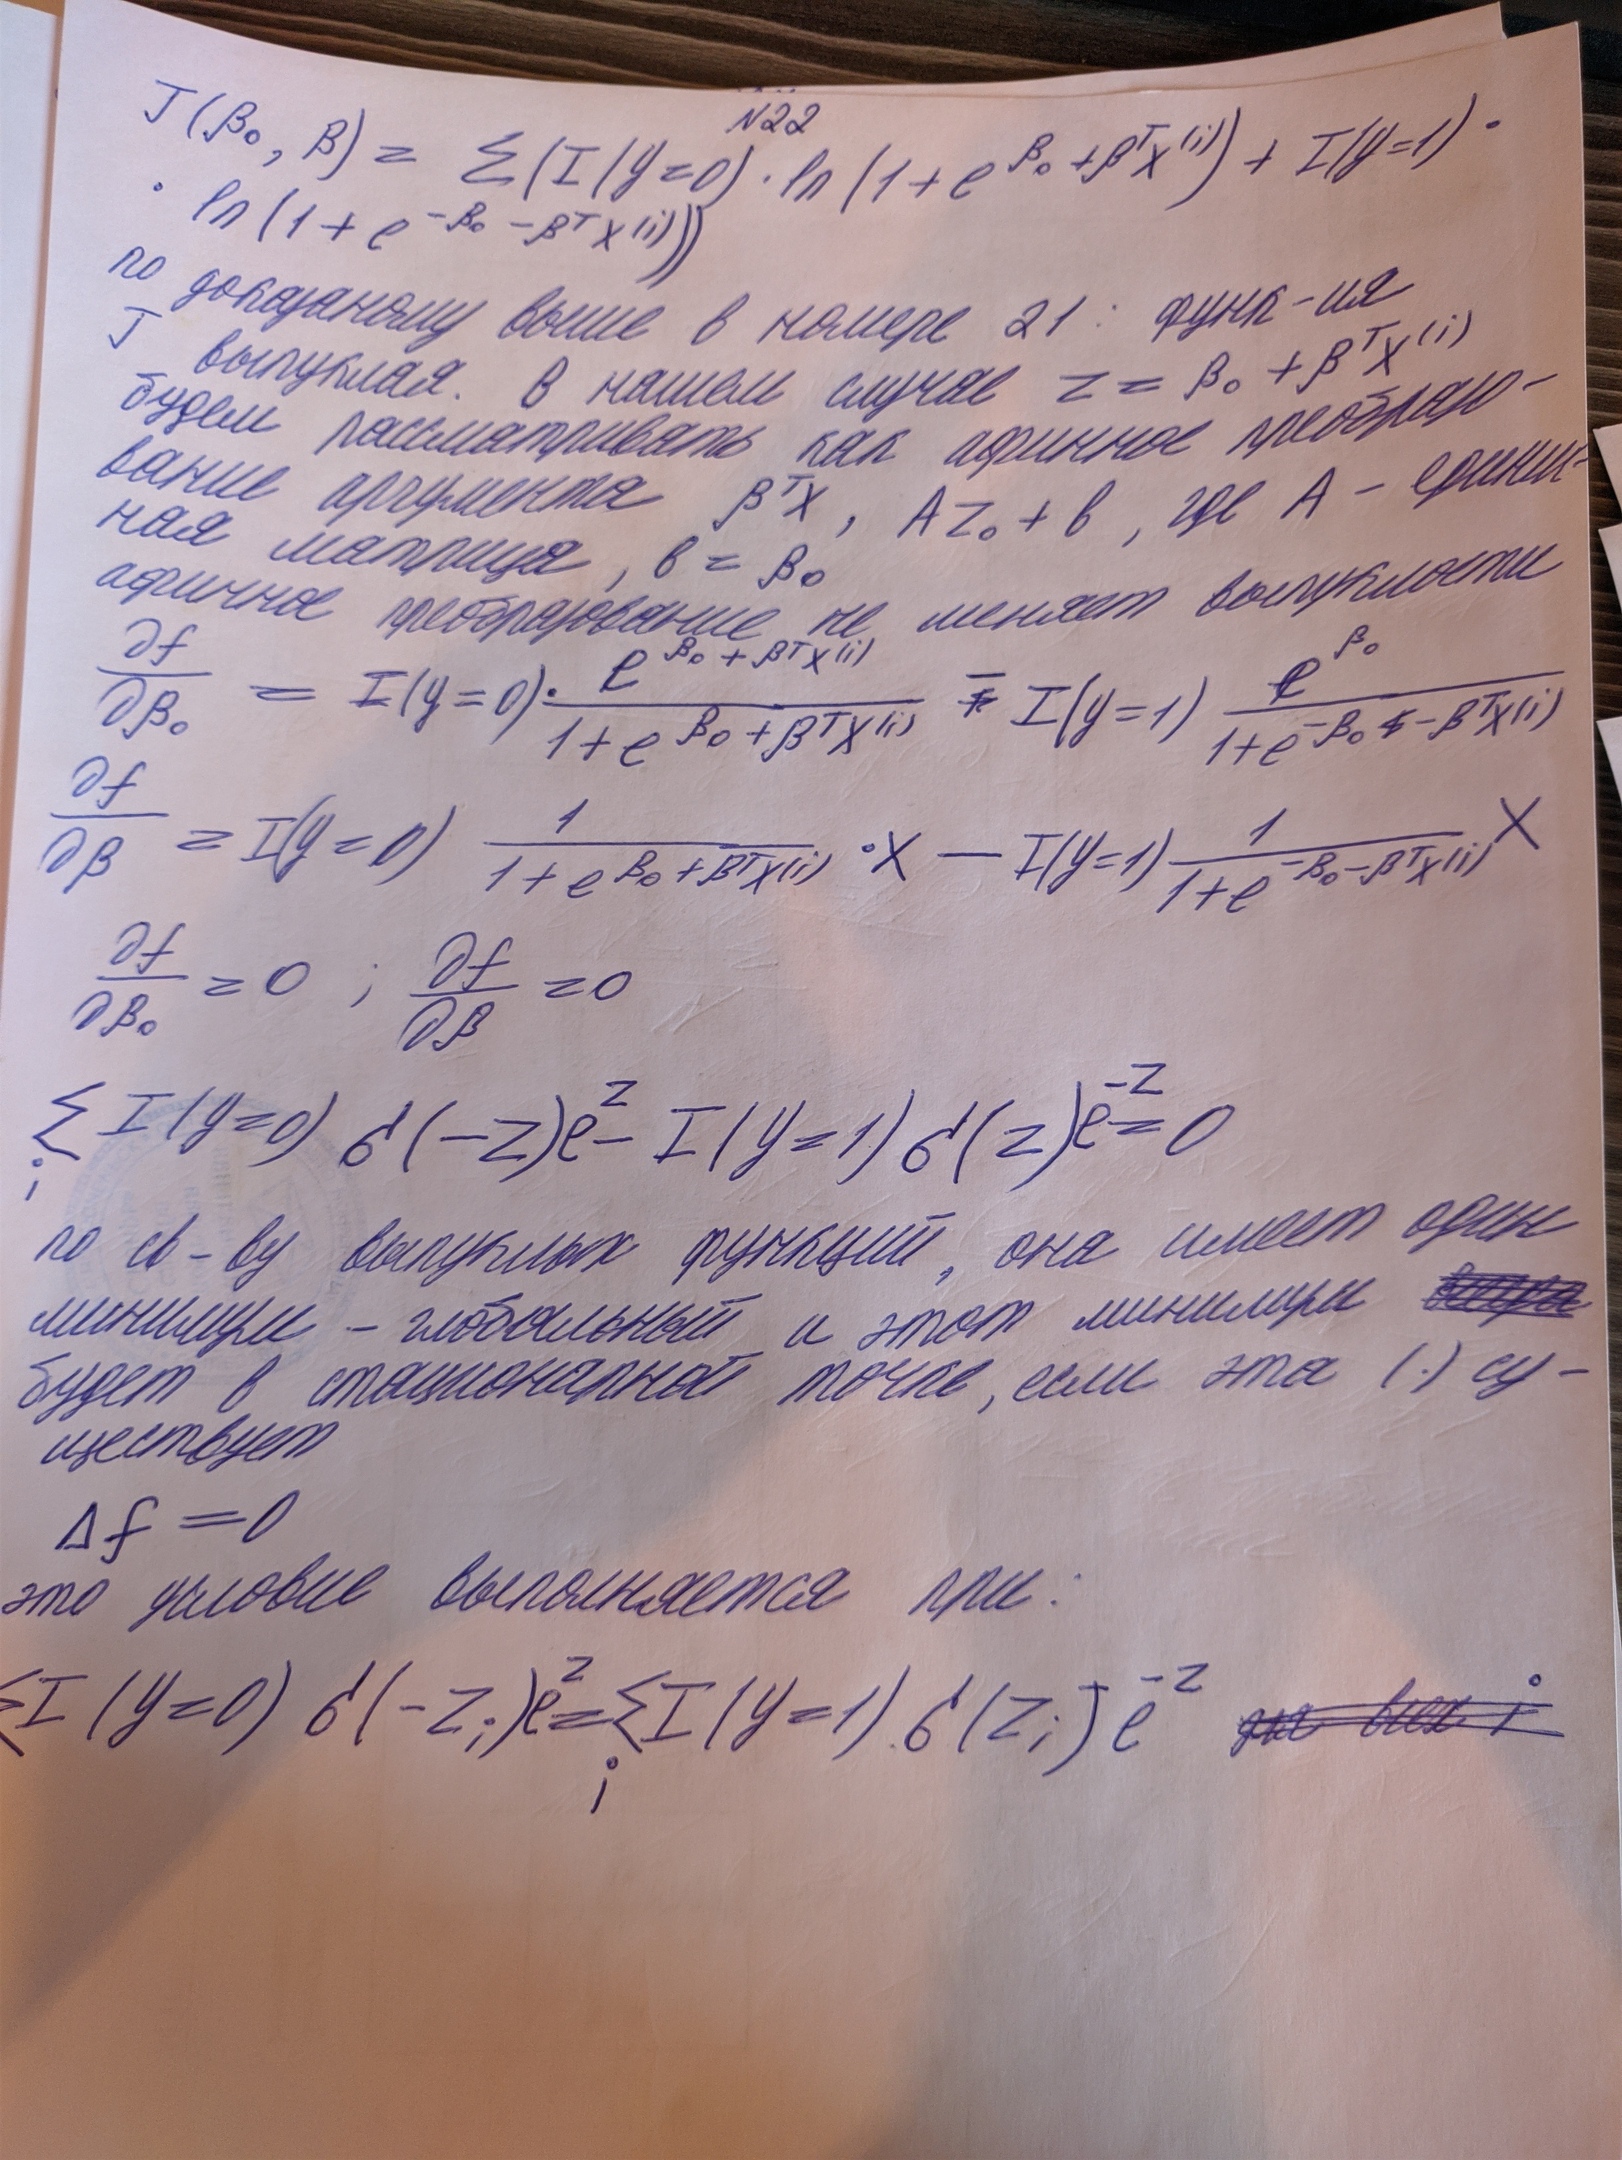 N22
J(β₀, β) = Σ(I(y=0)·ln(1+e^{β₀+β^T X^{(i)}}) + I(y=1)·
· ln(1+e^{-β₀-β^T X^{(i)}}))
по доказаному выше в номере 21: функ-ия
J выпуклая. В нашем случае z = β₀ + β^T X^{(i)}
будем рассматривать как афинное преобразо-
вание аргумента β^T X, AZ₀ + b, где A - единич-
ная матрица, b = β₀
афинное преобразование не меняет выпуклости
∂f/∂β₀ = I(y=0)· e^{β₀+β^T X^{(i)}} / (1+e^{β₀+β^T X^{(i)}}) - I(y=1) e^{β₀} / (1+e^{-β₀-β^T X^{(i)}})
∂f/∂β = I(y=0) 1 / (1+e^{β₀+β^T X^{(i)}}) ·X - I(y=1) 1 / (1+e^{-β₀-β^T X^{(i)}}) X
∂f/∂β₀ = 0 ; ∂f/∂β = 0
Σ_i I(y=0) σ(-z)e^z - I(y=1) σ(z)e^{-z} = 0
по св-ву выпуклых функций, она имеет один
минимум - глобальный и этот минимум
будет в стационарной точке, если эта (·) су-
ществует
Δf = 0
это условие выполняется при:
Σ I(y=0) σ(-z_i)e^z = Σ_i I(y=1) σ(z_i) e^{-z}